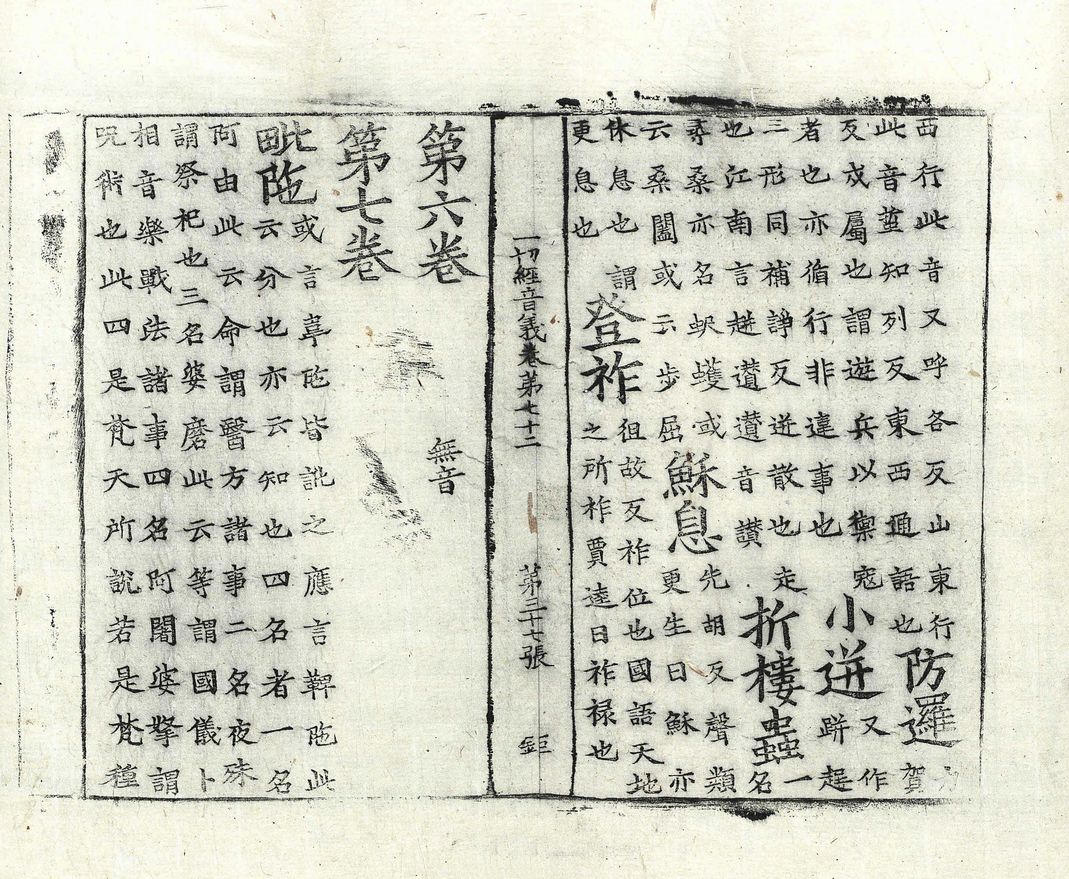 西行此音又呼各反山東行
此音蜇知列反東西通語也
防邏
力
賀
反戍屬也謂遊兵以禦寇
者也亦循行非違事也
小迸
又作
跰趕
三形同補諍反迸散也走
也江南言音讃
折樓蟲
一
名
尋桑亦名蚇蠖或
云桑闔或云步屈
穌息
先胡反聲類
更生曰穌亦
休息也謂
更息也
登祚
徂故反祚位也國語天地
之所祚賈逵曰祚禄也
一切經音義卷第七十二 第三十七張 鉅
第六卷 無音
第七卷
毗陁
或言韋陁皆訛之應言鞞陁此
云分也亦云知也四名者一名
阿由此云命謂醫方諸事二名夜殊
謂祭祀也三名婆磨此云等謂國儀卜
相音樂戰法諸事四名阿闥婆拏謂
呪術也此四是梵天所說若是梵種